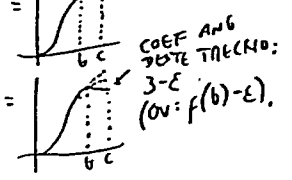 =
b c
COEF ANG
DESTE TRECHO:
3-ε
(OU: f(b)-ε).
=
b c